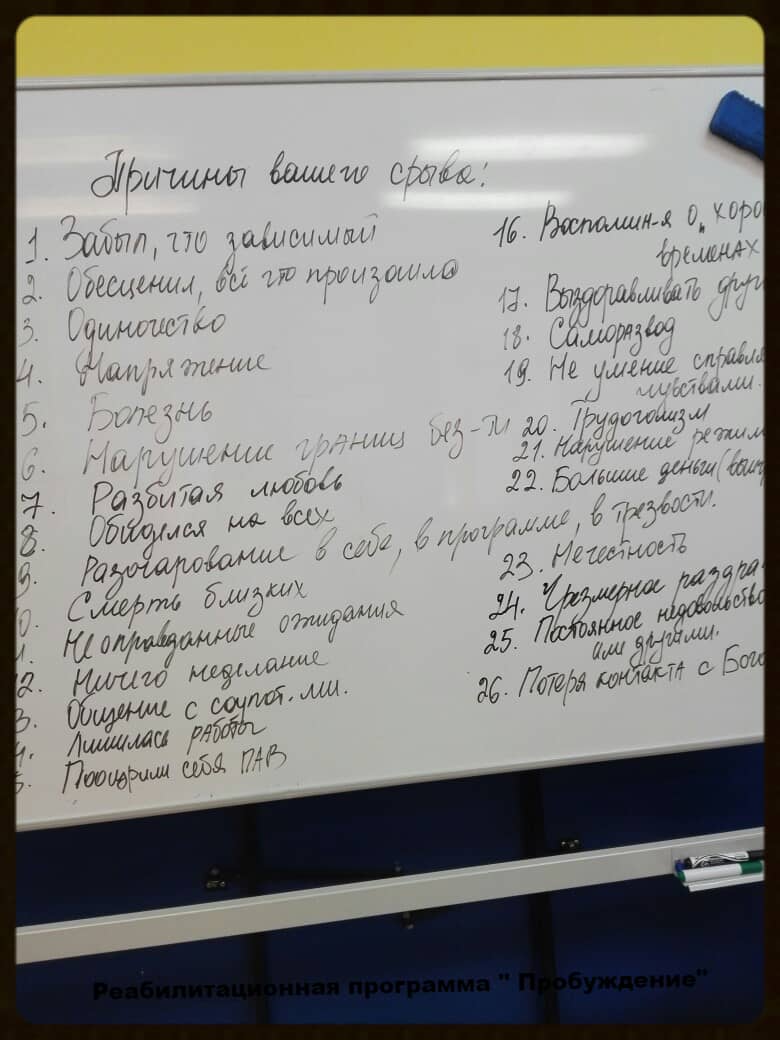 Причины вашего срыва:
1. Забыл, что зависимый
2. Обесценил, всё что произошло
3. Одиночество
4. Напряжение
5. Болезнь
6. Нарушение границ без-ти
7. Разбитая любовь
8. Обиделся на всех
9. Разочарование в себе, в программе, в трезвости.
0. Смерть близких
1. Не оправданные ожидания
2. Ничего неделание
3. Общение с соупот.ми.
4. Лишилась работы
5. Поощрили себя ПАВ
16. Воспомин-я о хоро
временах
17. Выздоравливать друг
18. Саморазвод
19. Не умение справля
чувствами.
20. Трудоголизм
21. Нарушение режим
22. Большие деньги (выиг
23. Нечестность
24. Чрезмерное раздра
25. Постоянное недовольство
или другими.
26. Потеря контакта с Бого
Реабилитационная программа " Пробуждение"